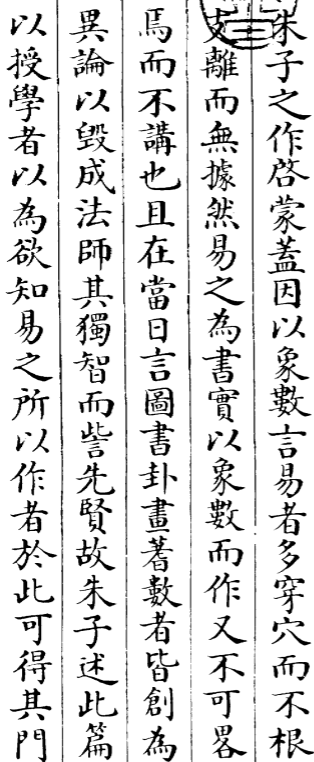 朱子之作啓蒙蓋因以象數言易者多穿穴而不根
支離而無據然易之為書實以象數而作又不可畧
焉而不講也且在當日言圖書卦畫蓍數者皆創為
異論以毀成法師其獨智而訾先賢故朱子述此篇
以授學者以為欲知易之所以作者於此可得其門